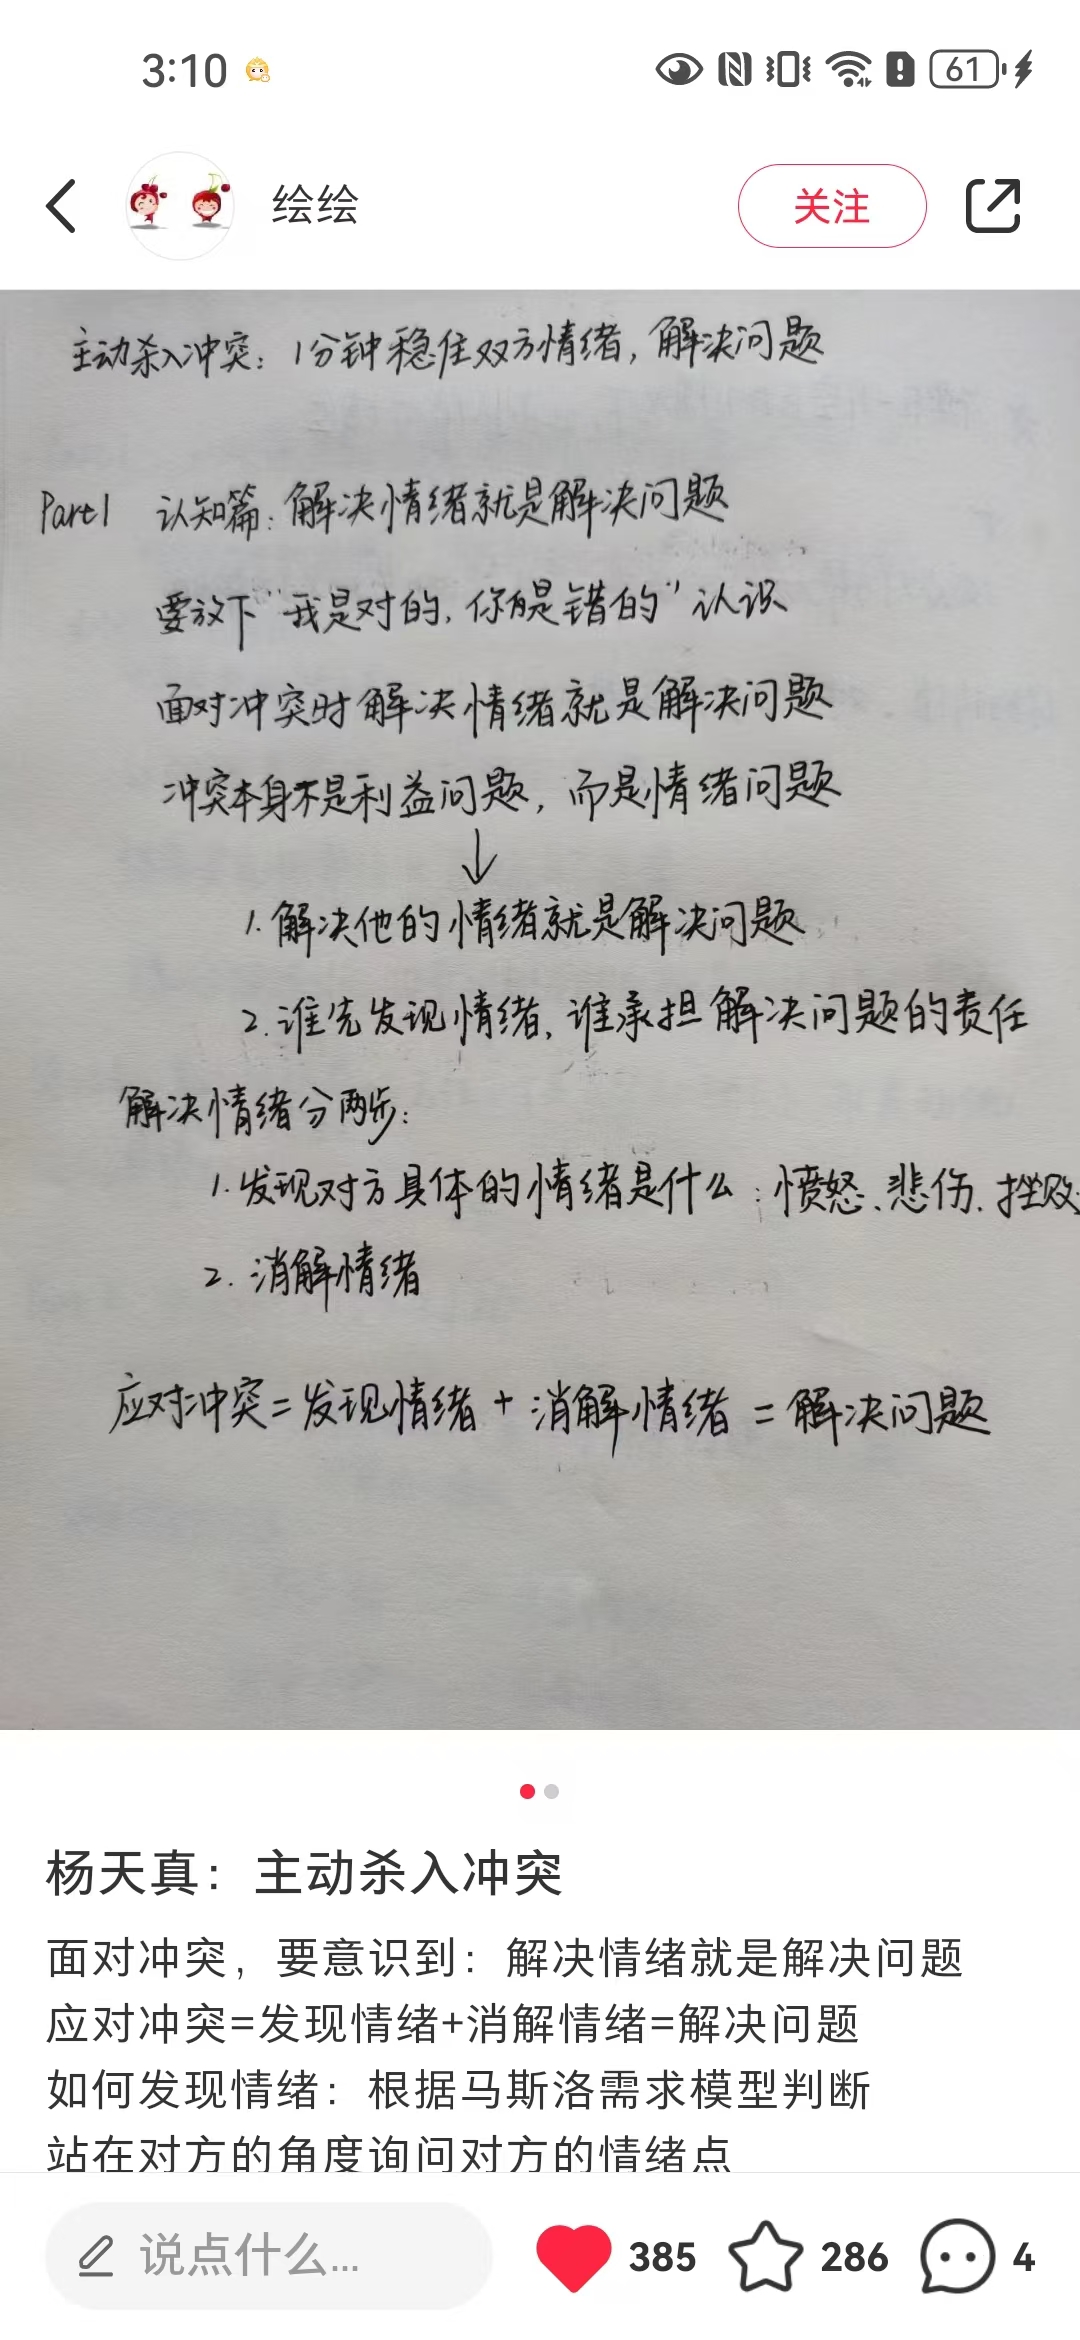 3:10
61
绘绘
关注
主动杀入冲突：1分钟稳住双方情绪，解决问题
Part1 认知篇：解决情绪就是解决问题
要放下“我是对的，你是错的”认识
面对冲突时解决情绪就是解决问题
冲突本身不是利益问题，而是情绪问题
↓
1.解决他的情绪就是解决问题
2.谁先发现情绪，谁承担解决问题的责任
解决情绪分两步：
1.发现对方具体的情绪是什么：愤怒、悲伤、挫败
2.消解情绪
应对冲突=发现情绪+消解情绪=解决问题
杨天真：主动杀入冲突
面对冲突，要意识到：解决情绪就是解决问题
应对冲突=发现情绪+消解情绪=解决问题
如何发现情绪：根据马斯洛需求模型判断
站在对方的角度询问对方的情绪点
说点什么...
385
286
4